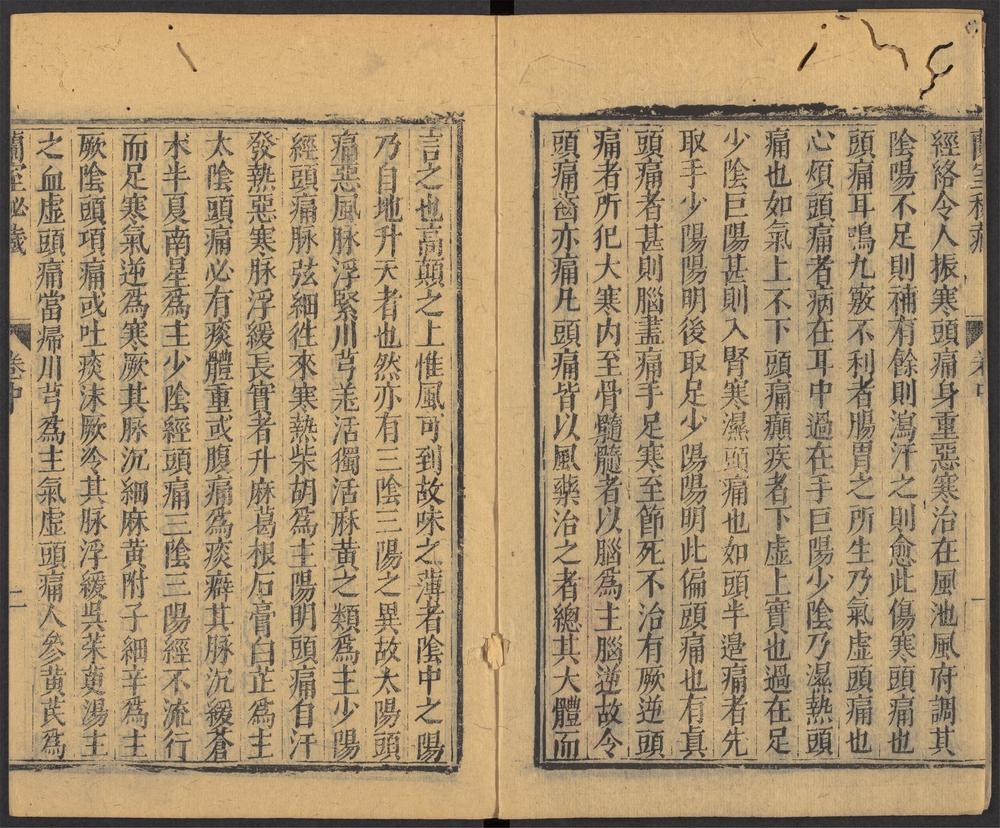 經絡令人振寒頭痛身重惡寒治在風池風府調其
陰陽不足則補有餘則瀉汗之則愈此傷寒頭痛也
頭痛耳鳴九竅不利者腸胃之所生乃氣虛頭痛也
心煩頭痛者病在耳中過在手巨陽少陰乃濕熱頭
痛也如氣上不下頭痛癲疾者下虛上實也過在足
少陰巨陽甚則入腎寒濕頭痛也如頭半邊痛者先
取手少陽陽明後取足少陽陽明此偏頭痛也有真
頭痛者甚則腦盡痛手足寒至節死不治有厥逆頭
痛者所犯大寒内至骨髓髓者以腦為主腦逆故令
頭痛齒亦痛凡頭痛皆以風藥治之者總其大體而
言之也高巔之上惟風可到故味之薄者陰中之陽
乃自地升天者也然亦有三陰三陽之異故太陽頭
痛惡風脉浮緊川芎羌活獨活麻黄之類為主少陽
經頭痛脉弦細徃來寒熱柴胡為主陽明頭痛自汗
發熱惡寒脉浮緩長實者升麻葛根石膏白芷為主
太陰頭痛必有痰體重或腹痛為痰癖其脉沉緩蒼
术半夏南星為主少陰經頭痛三陰三陽經不流行
而足寒氣逆為寒厥其脉沉細麻黄附子細辛為主
厥陰頭項痛或吐痰沫厥冷其脉浮緩吳茱萸湯主
之血虛頭痛當歸川芎為主氣虛頭痛人參黄芪為
蘭室祕藏
卷中
二